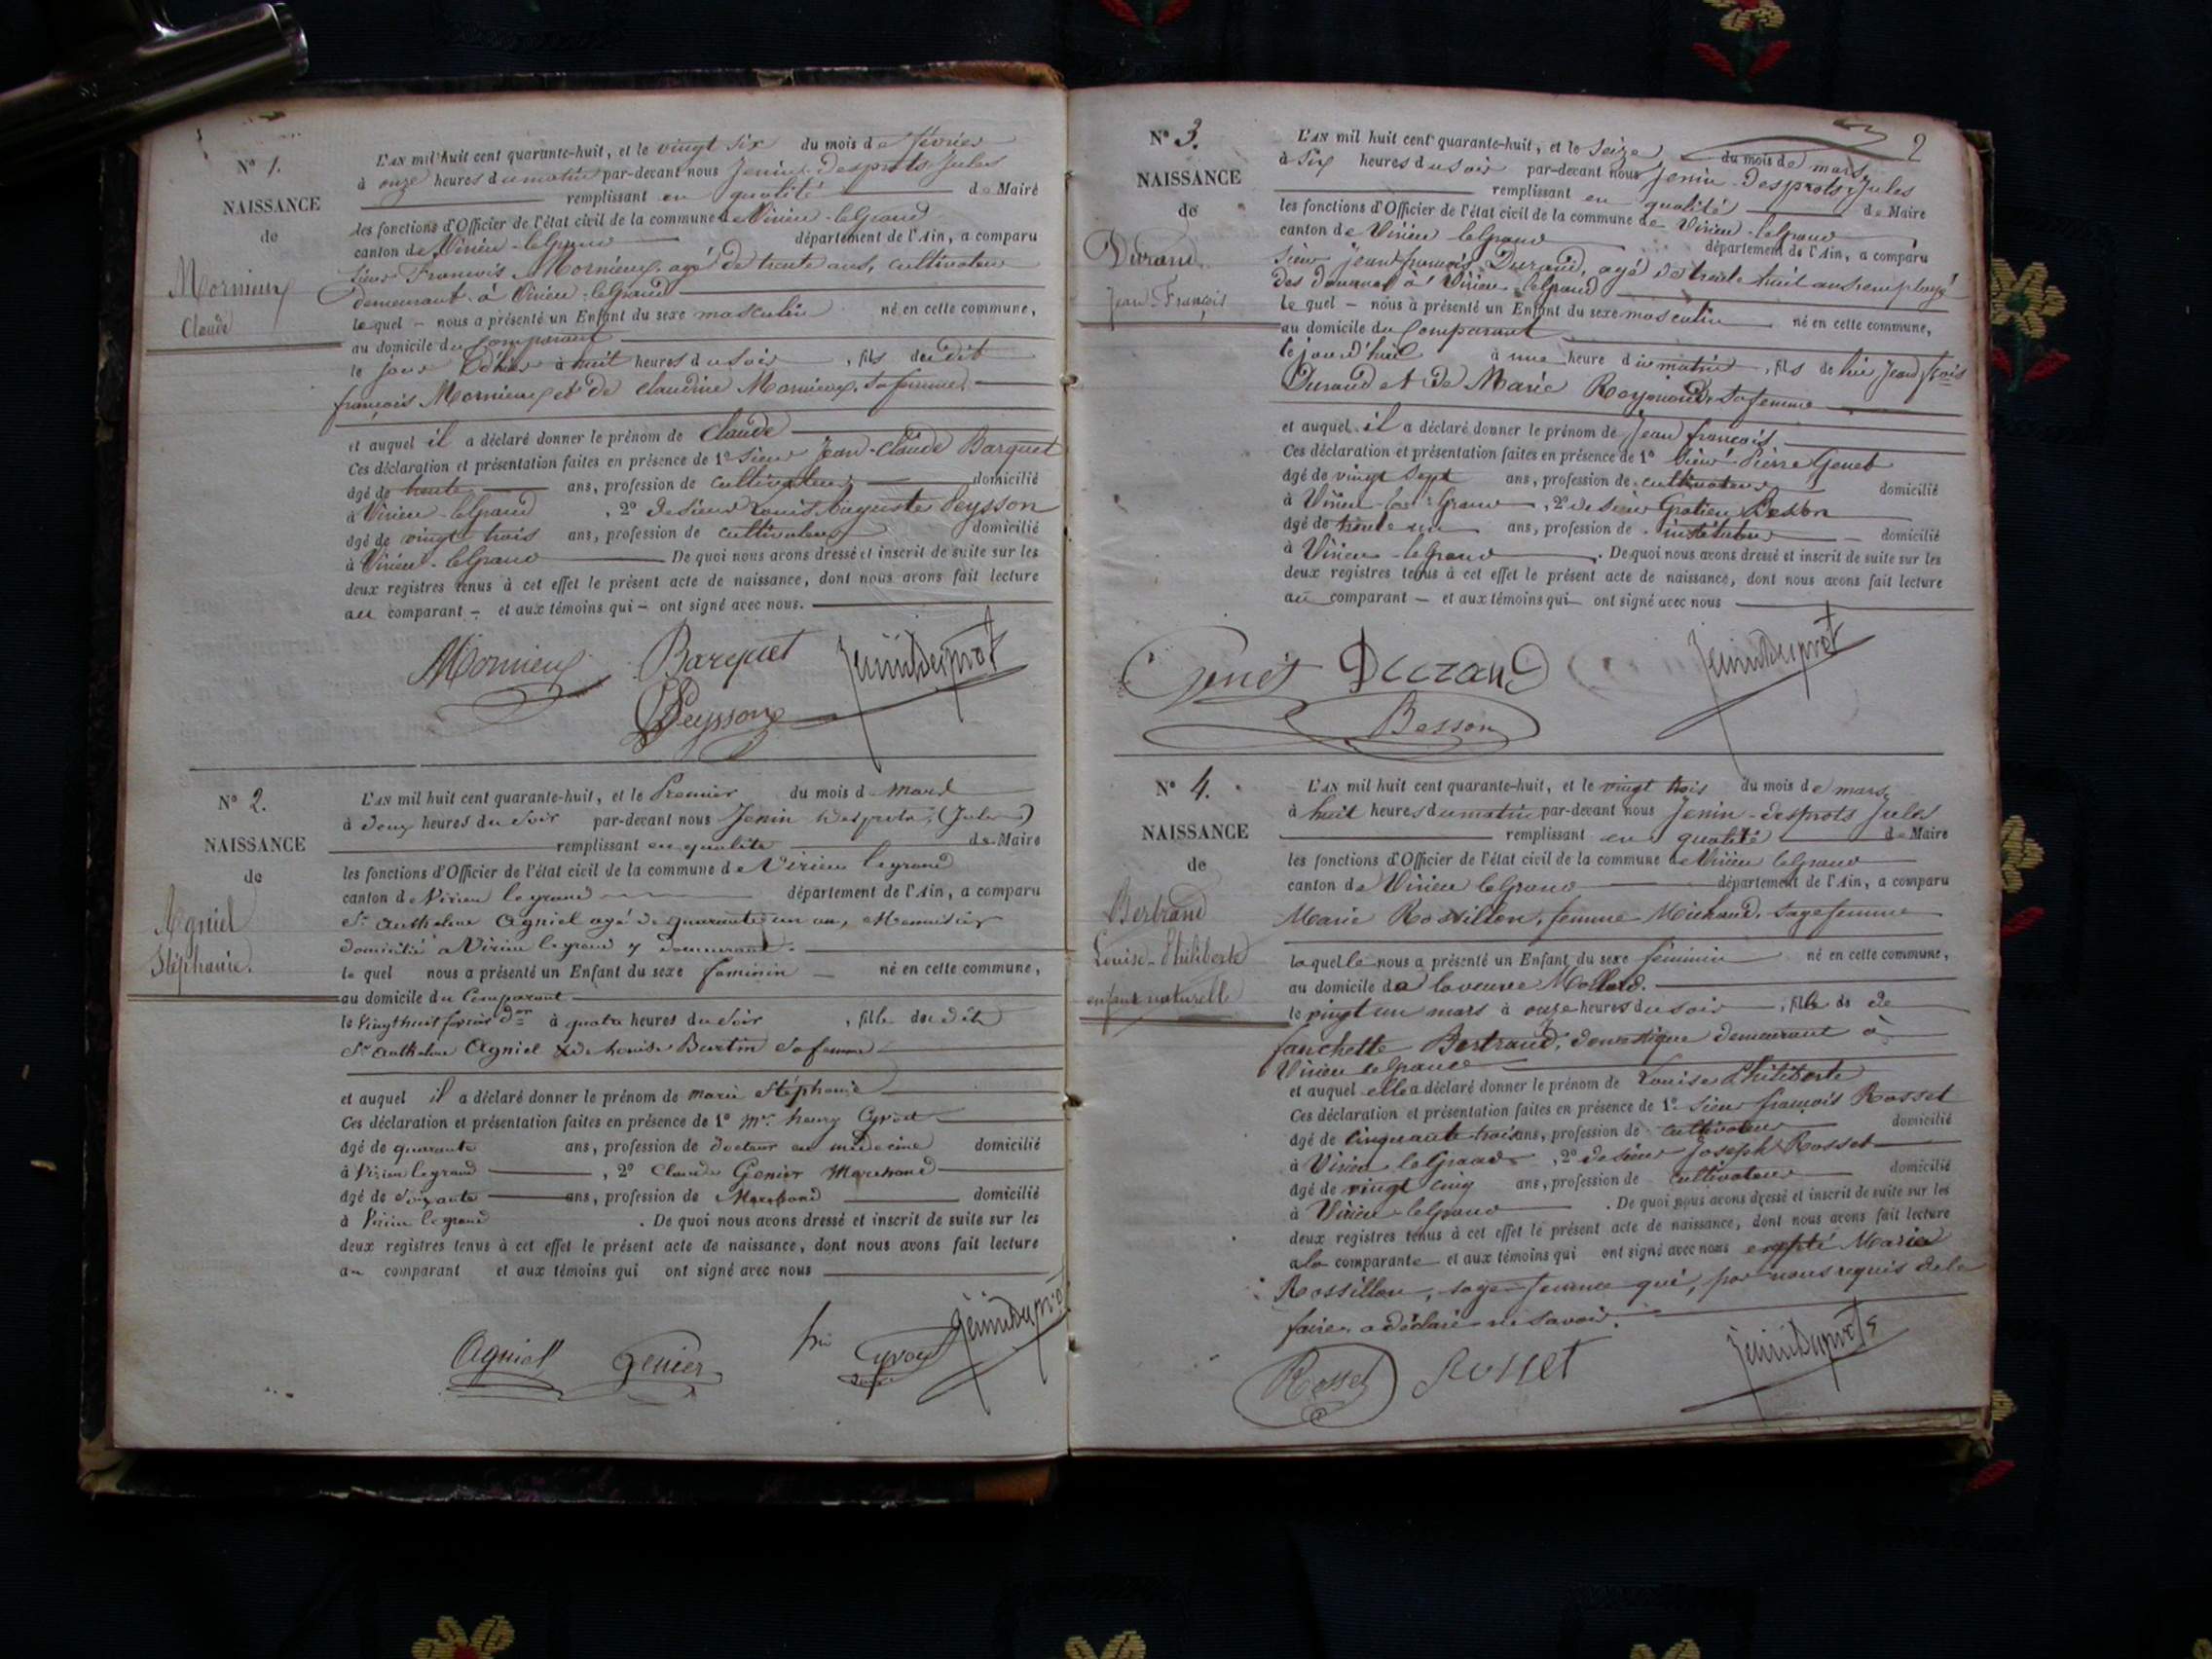 N° 1.
NAISSANCE
de
Mornieux
Claude
L'AN mil huit cent quarante-huit, et le vingt six du mois de février
à onze heures du matin par-devant nous Jenin-Desprots Jules
remplissant en qualité de Maire
les fonctions d'Officier de l'état civil de la commune de Virieu-le Grand
canton de Virieu-le Grand département de l'Ain, a comparu
Sieur François Mornieux, agé de trente ans, cultivateur
demeurant à Virieu-le Grand
lequel – nous a présenté un Enfant du sexe masculin né en cette commune,
au domicile du Comparant
le jour d'hier à huit heures du soir, fils du dit
françois Mornieux et de Claudine Mornieux, sa femme.
et auquel il a déclaré donner le prénom de Claude
Ces déclaration et présentation faites en présence de 1° Sieur Jean-Claude Barquet
âgé de trente ans, profession de cultivateur domicilié
à Virieu-le Grand, 2° de Sieur Louis Auguste Peysson
âgé de vingt trois ans, profession de cultivateur domicilié
à Virieu-le Grand De quoi nous avons dressé et inscrit de suite sur les
deux registres tenus à cet effet le présent acte de naissance, dont nous avons fait lecture
au comparant – et aux témoins qui – ont signé avec nous.
Mornieux Barquet JeninDesprot
Peysson
N° 2.
NAISSANCE
de
Agniel
Stéphanie.
L'AN mil huit cent quarante-huit, et le Premier du mois d Mars
à deux heures du Soir par-devant nous Jenin Desprots, (Jules)
remplissant en qualité de Maire
les fonctions d'Officier de l'état civil de la commune de Virieu le grand
canton de Virieu le grand département de l'Ain, a comparu
Sr Anthelme Agniel agé de quarante un an, Menuisier
domicilié a Virieu le grand y demeurant.
lequel nous a présenté un Enfant du sexe feminin né en cette commune,
au domicile du Comparant
le vingt huit fevrier dr à quatre heures du Soir, fille du dit
Sr Anthelme Agniel & de Louise Burtin Sa femme
et auquel il a déclaré donner le prénom de marie Stéphanie
Ces déclaration et présentation faites en présence de 1° Mr. henry Cyvoct
âgé de quarante ans, profession de docteur en médecine domicilié
à Virieu le grand, 2° Claude Genier Marchand
âgé de soixante ans, profession de Marchand domicilié
à Virieu le grand. De quoi nous avons dressé et inscrit de suite sur les
deux registres tenus à cet effet le présent acte de naissance, dont nous avons fait lecture
au comparant et aux témoins qui ont signé avec nous
Agniel Genier Cyvoct JeninDesprot
2
N° 3.
NAISSANCE
de
Durand
Jean-François
L'AN mil huit cent quarante-huit, et le Seize du mois de mars
à Six heures du soir par-devant nous Jenin-Desprots, Jules
remplissant en qualité de Maire
les fonctions d'Officier de l'état civil de la commune de Virieu-le Grand
canton de Virieu le Grand département de l'Ain, a comparu
Sieur Jean françois Durand, agé de trente huit ans employé
des douanes à Virieu-le Grand
lequel – nous à présenté un Enfant du sexe masculin né en cette commune,
au domicile du Comparant
le jourd'hui à une heure du matin, fils de lui Jean fçois
Durand et de Marie Reymond, sa femme
et auquel il a déclaré donner le prénom de Jean françois.
Ces déclaration et présentation faites en présence de 1° Sieur Pierre Genet
âgé de vingt Sept ans, profession de cultivateur domicilié
à Virieu-le-Grand, 2° de Sieur Gratien Besson
âgé de trente un ans, profession de instituteur domicilié
à Virieu-le Grand. De quoi nous avons dressé et inscrit de suite sur les
deux registres tenus à cet effet le présent acte de naissance, dont nous avons fait lecture
au comparant – et aux témoins qui – ont signé avec nous
Genet Durand JeninDesprot
Besson
N° 4.
NAISSANCE
de
Bertrand
Louise-Philiberte
enfant naturelle
L'AN mil huit cent quarante-huit, et le vingt trois du mois de mars
à huit heures du matin par-devant nous Jenin-desprots Jules
remplissant en qualité de Maire
les fonctions d'Officier de l'état civil de la commune de Virieu le Grand
canton de Virieu le Grand département de l'Ain, a comparu
Marie Rossillon, femme Michaud, sage femme
laquelle nous a présenté un Enfant du sexe féminin né en cette commune,
au domicile de la veuve Mollard.
le vingt un mars à onze heures du soir, fille de de
fanchette Bertrand, domestique demeurant à
Virieu le Grand
et auquel elle a déclaré donner le prénom de Louise Philiberte
Ces déclaration et présentation faites en présence de 1° Sieur françois Rosset
âgé de cinquante trois ans, profession de cultivateur domicilié
à Virieu le Grand, 2° de sieur Joseph Rosset
âgé de vingt cinq ans, profession de cultivateur domicilié
à Virieu-le Grand. De quoi nous avons dressé et inscrit de suite sur les
deux registres tenus à cet effet le présent acte de naissance, dont nous avons fait lecture
a la comparante et aux témoins qui ont signé avec nous excepté Marie
Rossillon, sage-femme qui, par nous requis de le
faire, a déclaré ne savoir.
Rosset Rosset JeninDesprots